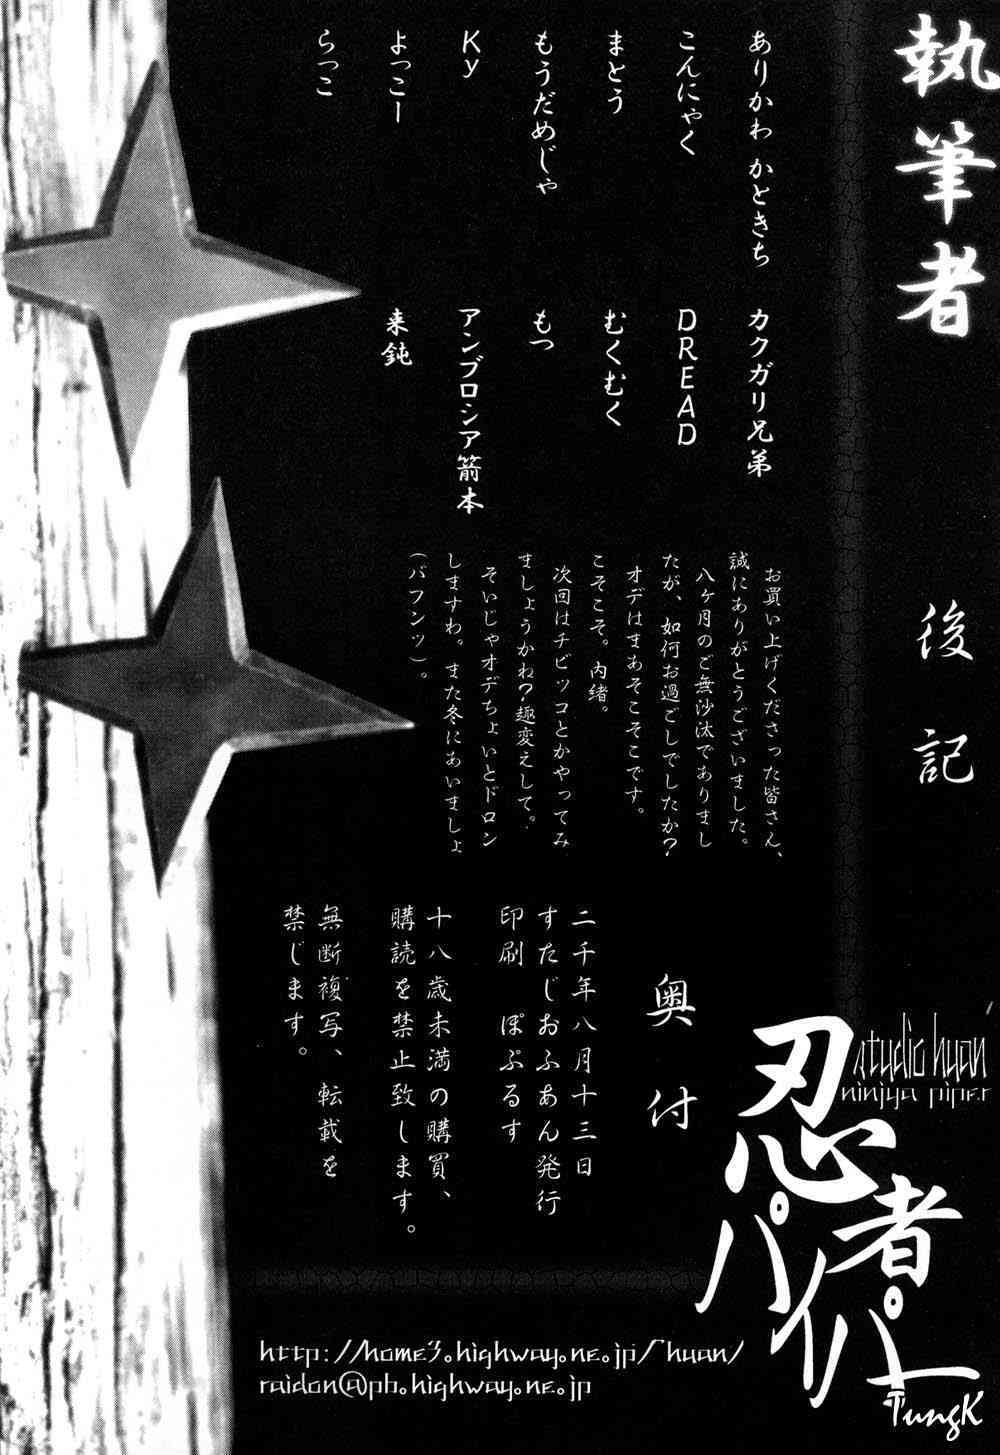 執筆者
ありかわ かときち
こんにゃく
まとう
もうだめじゃ
Ky
よっこー
らっこ
カクガリ兄弟
DREAD
むくむく
もつ
アンブロシア箭本
来鈍
後記
お買い上げくださった皆さん、
誠にありがとうございました。
八ヶ月のご無沙汰でありまし
たが、如何お過ごしでしたか?
オデはまあそこそこです。
こそこそ。内緒。
次回はチビッコとかやってみ
ましょうかね?趣変えして。
そいじゃオデちょいとドロン
しますわ。また冬にあいましょ
(バフンッ)。
奥付
二千年八月十三日
すたじおふあん発行
印刷 ぽぷるす
十八歳未満の購買、
購読を禁止致します。
無断複写、転載を
禁じます。
studio huan
ninjya piper
忍者
パイパー
TungK
http://home3.highway.ne.jp/~huan/
raidon@pb.highway.ne.jp